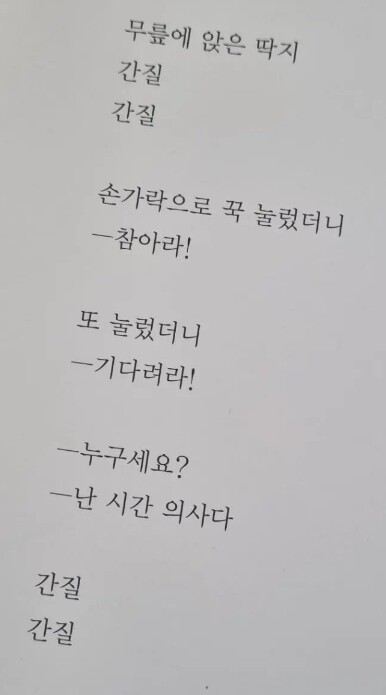 무릎에 앉은 딱지
간질
간질
손가락으로 꾹 눌렀더니
—참아라!
또 눌렀더니
—기다려라!
—누구세요?
—난 시간 의사다
간질
간질